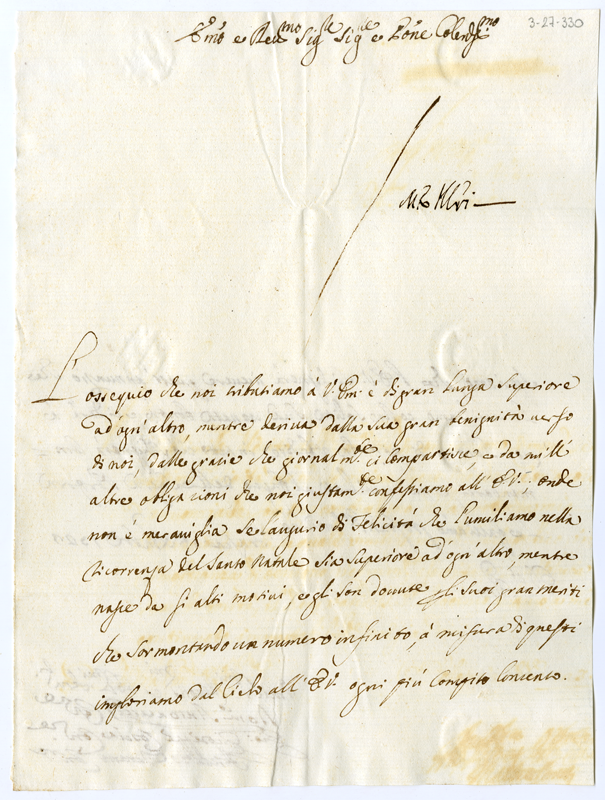 3-27-330
Emo e Redmo Sigre Sigre e Prone Colendmo
L'ossequio che noi tributiamo à V. Em. è di gran lunga superiore
ad'ogn'altro, mentre deriva dalla sua gran benignità verso
di noi, dalle grazie che giornalmte. ci Compartisce, e da mill'
altre obligazioni che noi giustamte. confessiamo all' E.V., onde
non è meraviglia se l'augurio di Felicità che l'umiliamo nella
Ricorrenza del Santo Natale sia superiore ad'ogn'altro, mentre
nasce da si alti motivi, e gli son dovute gli suoi gran meriti
che sormontando un numero infinito, à misura di questi
imploriamo dal Cielo all' E.V. ogni più Compito Contento.